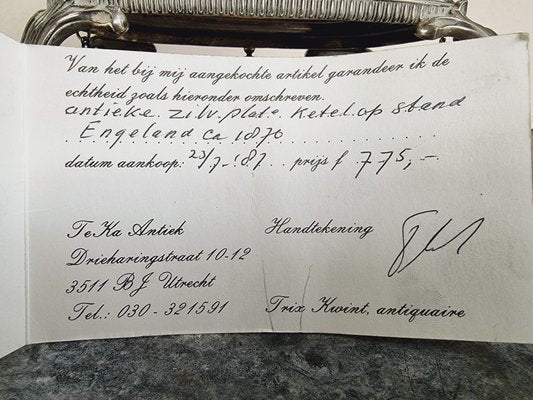 Van het bij mij aangekochte artikel garandeer ik de
echtheid zoals hieronder omschreven.
antieke zilv. plate ketel op stand
Engeland ca 1870
datum aankoop: 23/7-'87 prijs f 775,-
TeKa Antiek
Handtekening
Drieharingstraat 10-12
3511 BJ Utrecht
Tel.: 030 - 321591
Trix Kwint, antiquaire